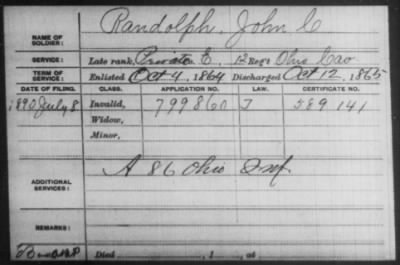 NAME OF SOLDIER: Randolph, John C
SERVICE: Late rank, Private E, 12 Reg't Ohio Cav
TERM OF SERVICE: Enlisted Oct 4, 1864 Discharged Oct 12, 1865
DATE OF FILING. CLASS. APPLICATION NO. LAW. CERTIFICATE NO.
1890 July 8 Invalid, 799860 J 589141
Widow,
Minor,
ADDITIONAL SERVICES: A 86 Ohio Inf
REMARKS:
Died , 1 , at